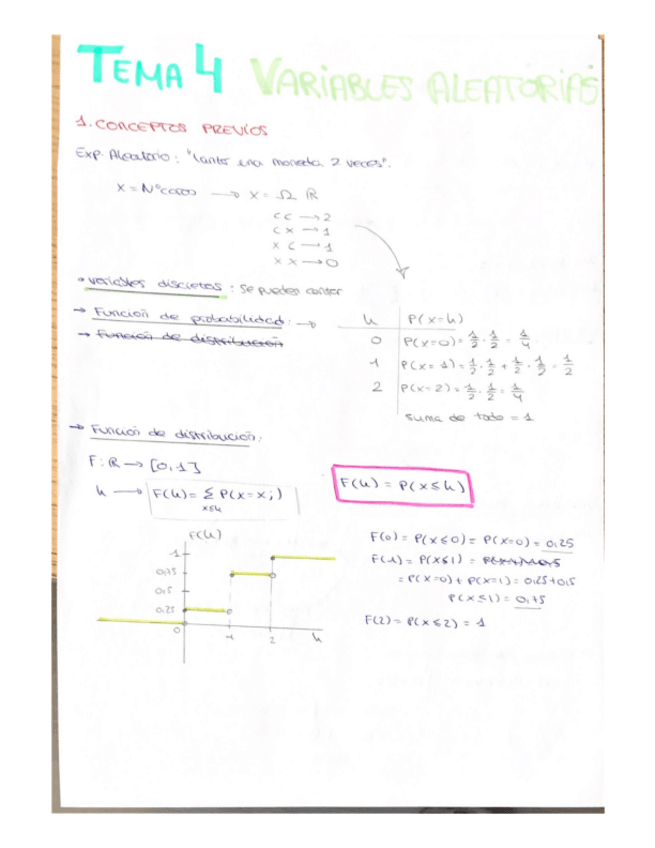 TEMA 4 VARIABLES ALEATORIAS
1. CONCEPTOS PREVIOS
Exp. Aleatorio: "Lanzar una moneda 2 veces".
X = Nº caras → X = Ω ℝ
CC → 2
CX → 1
XC → 1
XX → 0
• Variables discretas: se pueden contar
→ Función de probabilidad: →
→ Función de distribución
k P(X=k)
0 P(X=0) = 1/2 · 1/2 = 1/4
1 P(X=1) = 1/2 · 1/2 + 1/2 · 1/2 = 1/2
2 P(X=2) = 1/2 · 1/2 = 1/4
suma de todo = 1
→ Función de distribución:
F: ℝ → [0,1]
k → F(k) = Σ P(X=xi)
x≤k
F(k) = P(X≤k)
F(k)
1
0,75
0,5
0.25
0 1 2 k
F(0) = P(X≤0) = P(X=0) = 0,25
F(1) = P(X≤1) =
= P(X=0) + P(X=1) = 0,25 + 0,5
P(X≤1) = 0,75
F(2) = P(X≤2) = 1